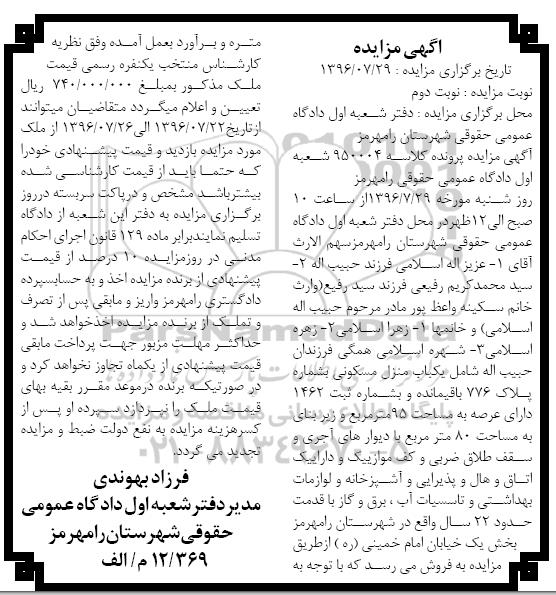 آگهی مزایده
تاریخ برگزاری مزایده : ۱۳۹۶/۰۷/۲۹
نوبت مزایده : نوبت دوم
محل برگزاری مزایده : دفتر شعبه اول دادگاه
عمومی حقوقی شهرستان رامهرمز
آگهی مزایده پرونده کلاسه ۹۵۰۰۰۴ شعبه
اول دادگاه عمومی حقوقی رامهرمز
روز شنبه مورخه ۱۳۹۶/۷/۲۹از ساعت ۱۰
صبح الی۱۲ظهردر محل دفتر شعبه اول دادگاه
عمومی حقوقی شهرستان رامهرمزسهم الارث
آقای ۱- عزیز اله اسلامی فرزند حبیب اله ۲-
سید محمدکریم رفیعی فرزند سید رفیع(وارث
خانم سکینه واعظ پور مادر مرحوم حبیب اله
اسلامی) و خانمها ۱- زهرا اسلامی۲- زهره
اسلامی۳- شهره اسلامی همگی فرزندان
حبیب اله شامل یکباب منزل مسکونی بشماره
پلاک ۷۷۶ باقیمانده و بشماره ثبت ۱۴۶۲
دارای عرصه به مساحت ۹۵مترمربع و زیر بنای
به مساحت ۸۰ متر مربع با دیوار های آجری و
سقف طلاق ضربی و کف موازییک و داراییک
اتاق و هال و پذیرایی و آشپزخانه و لوازمات
بهداشتی و تاسسیات آب ، برق و گاز با قدمت
حدود ۲۲ سال واقع در شهرستان رامهرمز
بخش یک خیابان امام خمینی (ره ) ازطریق
مزایده به فروش می رسد که با توجه به
متره و برآورد بعمل آمده وفق نظریه
کارشناس منتخب یکنفره رسمی قیمت
ملک مذکور بمبلغ ۷۴۰/۰۰۰/۰۰۰ ریال
تعیین و اعلام میگردد متقاضیان میتوانند
ازتاریخ۱۳۹۶/۰۷/۲۲ الی۱۳۹۶/۰۷/۲۶ از ملک
مورد مزایده بازدید و قیمت پیشنهادی خودرا
که حتما باید از قیمت کارشناسی شده
بیشترباشد مشخص و درپاکت سربسته درروز
برگزاری مزایده به دفتر این شعبه از دادگاه
تسلیم نمایندبرابر ماده ۱۲۹ قانون اجرای احکام
مدنی در روزمزایده ۱۰ درصد از قیمت
پیشنهادی از برنده مزایده اخذ و به حسابسپرده
دادگستری رامهرمز واریز و مابقی پس از تصرف
و تملک از برنده مزایده اخذخواهد شد و
حداکثر مهلت مزبور جهت پرداخت مابقی
قیمت پیشنهادی از یکماه تجاوز نخواهد کرد و
در صورتیکه برنده درموعد مقرر بقیه بهای
قیمت ملک را نپردازد سپرده او پس از
کسرهزینه مزایده به نفع دولت ضبط و مزایده
تجدید می گردد.
فرزاد بهوندی
مدیر دفتر شعبه اول دادگاه عمومی
حقوقی شهرستان رامهرمز
۱۲/۳۶۹ م/ الف